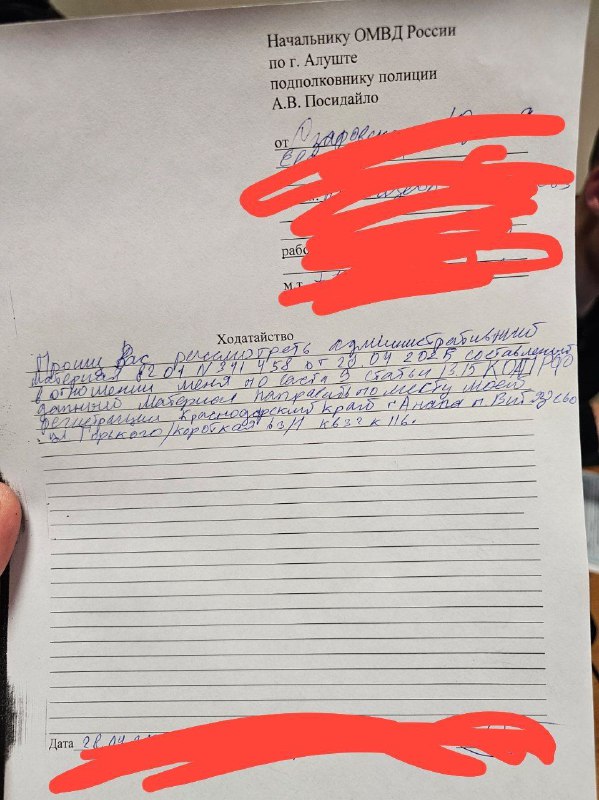 Начальнику ОМВД России
по г. Алуште
подполковнику полиции
А.В. Посидайло
от
рабо
м.т.
Ходатайство
Прошу Вас рассмотреть административный
материал 82 01 N 391 458 от 28 04 2025 составленный
в отношении меня по части 9 статьи 13 15 КОАП РФ
данный материал направить по месту моей
регистрации Краснодарский край г Анапа п Витязево
ул Горького/Короткая
Дата 28 04